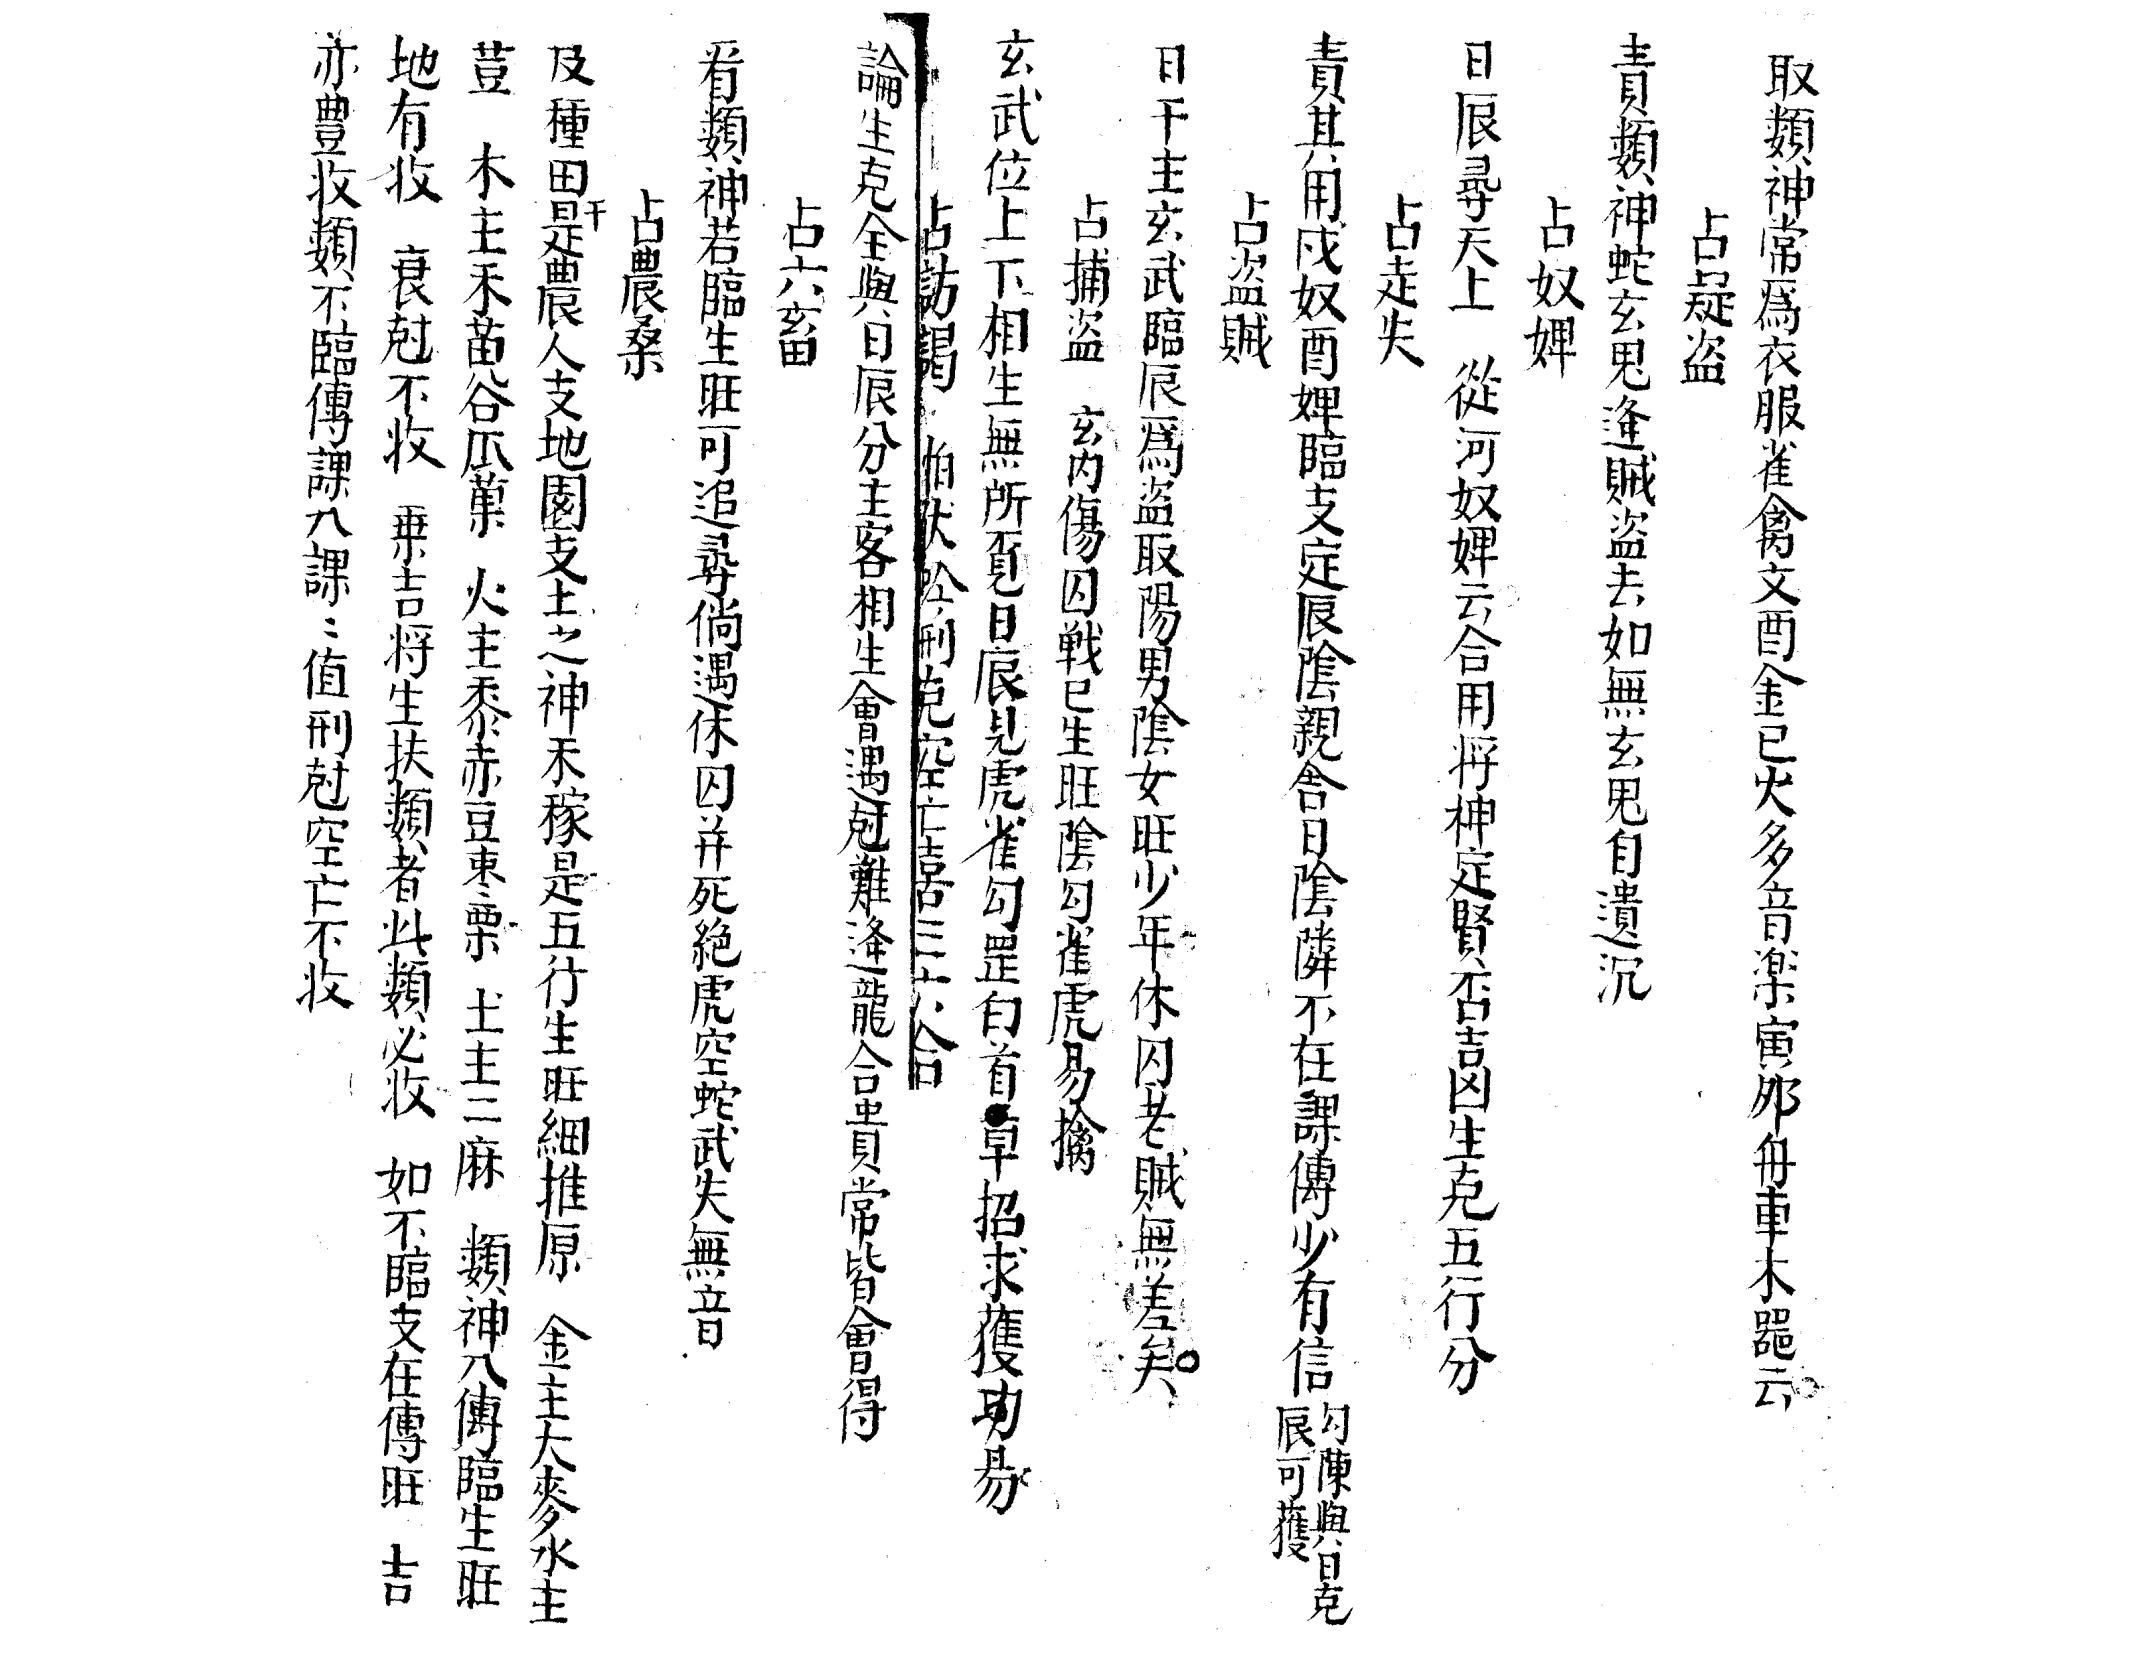 取類神常爲衣服雀禽文酉金巳火多音楽寅夘舟車木器云
占疑盗
責類神蛇玄鬼逢賊盗去如無玄鬼自遺沉
占奴婢
日辰尋天上　從河奴婢云合用将神定賢否吉凶生克五行分
占走失
責其用戌奴酉婢臨支定辰陰親舍日陰隣不在課傳少有信　勾陳與日克辰可獲
占盗賊
日干主玄武臨辰爲盗取陽男陰女旺少年休囚老賊無差矣
占捕盗　玄内傷囚戰巳生旺陰勾雀虎易擒
玄武位上下相生無所覓日辰見虎雀勾罡自首早招求獲功易
占訪謁　刑克空亡喜三六合
論生克全與日辰分主客相生會遇尅難逢龍合貴常皆會得
占六畜
看類神若臨生旺可追尋倘遇休囚并死絶虎空蛇武失無音
占農桑
及種田干是農人支地園支土之神禾稼是五行生旺細推原　金主大麥水主
荳　木主禾苗谷瓜菓　火主黍赤豆棗〻栗　土主二麻　類神入傳臨生旺
地有收　衰尅不收　乗吉将生扶類者此類必收　如不臨支在傳旺　吉
亦豊收類不臨傳課入課〻值刑尅空亡不收